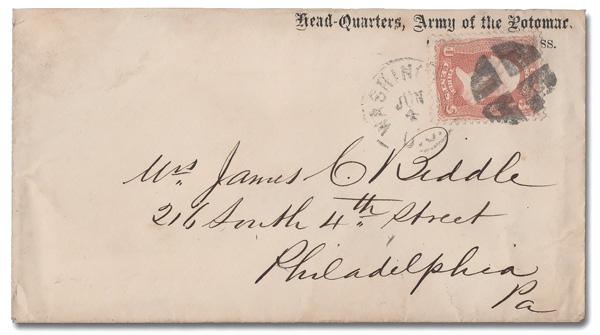 Head-Quarters, Army of the Potomac.
ss.
WASHING
JUN
4
Mrs James C Biddle
216 South 4th Street
Philadelphia
Pa